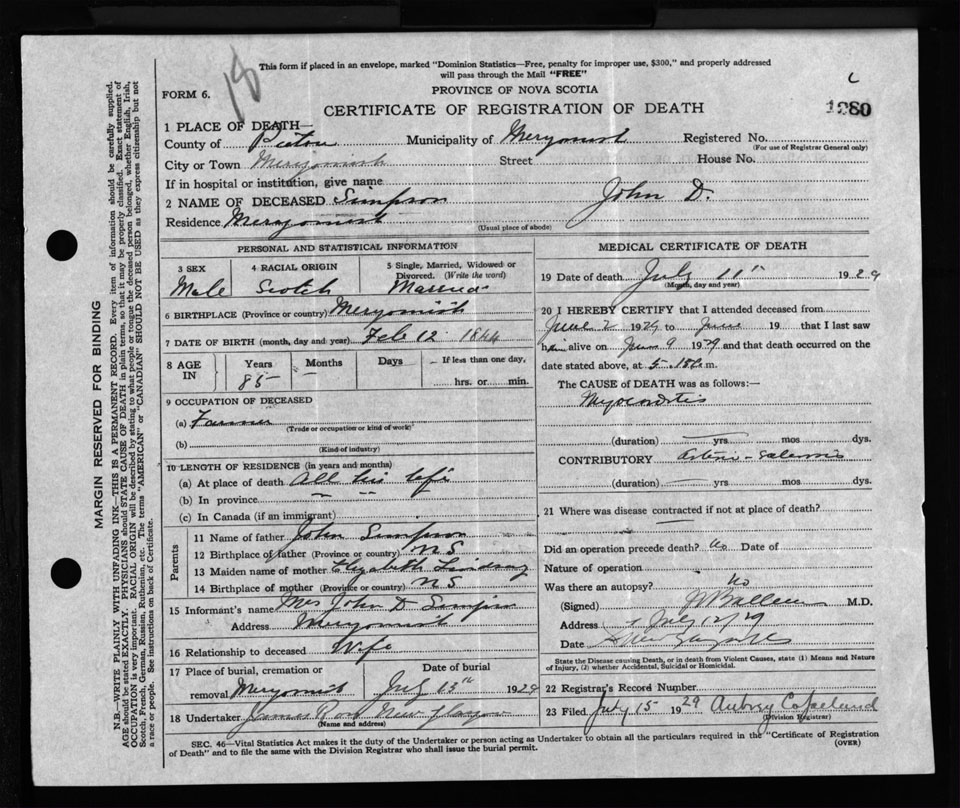 18
This form if placed in an envelope, marked "Dominion Statistics—Free, penalty for improper use, $300," and properly addressed
will pass through the Mail "FREE"
FORM 6.
PROVINCE OF NOVA SCOTIA
CERTIFICATE OF REGISTRATION OF DEATH
1 PLACE OF DEATH—
County of Pictou Municipality of Merigomish Registered No.
(For use of Registrar General only)
City or Town Merigomish Street House No.
If in hospital or institution, give name
2 NAME OF DECEASED Simpson John D.
Residence Merigomish
(Usual place of abode)
PERSONAL AND STATISTICAL INFORMATION
3 SEX 4 RACIAL ORIGIN 5 Single, Married, Widowed or
Divorced. (Write the word)
Male Scotch Married
6 BIRTHPLACE (Province or country) Merigomish
7 DATE OF BIRTH (month, day and year) Feb 12 1844
8 AGE IN Years Months Days If less than one day,
85 hrs. or min.
9 OCCUPATION OF DECEASED
(a) Farmer
(Trade or occupation or kind of work)
(b)
(Kind of industry)
10 LENGTH OF RESIDENCE (in years and months)
(a) At place of death All his life
(b) In province " "
(c) In Canada (if an immigrant)
Parents
11 Name of father John Simpson
12 Birthplace of father (Province or country) NS
13 Maiden name of mother Elizabeth Lindsay
14 Birthplace of mother (Province or country) NS
15 Informant's name Mrs John D Simpson
Address Merigomish
16 Relationship to deceased Wife
17 Place of burial, cremation or Date of burial
removal Merigomish July 13th 1929
18 Undertaker James Ross New Glasgow
(Name and address)
MEDICAL CERTIFICATE OF DEATH
19 Date of death July 11th 1929
(Month, day and year)
20 I HEREBY CERTIFY that I attended deceased from
June 2 1929 to June 19 that I last saw
him alive on June 9 1929 and that death occurred on the
date stated above, at 5 m.
The CAUSE of DEATH was as follows:—
Myocarditis
(duration) yrs mos dys.
CONTRIBUTORY Arterio-sclerosis
(duration) yrs. mos. dys.
21 Where was disease contracted if not at place of death?
Did an operation precede death? No Date of
Nature of operation
Was there an autopsy? No
(Signed) M.D.
Address July 12/29
Date New Glasgow NS
State the Disease causing Death, or in death from Violent Causes, state (1) Means and Nature
of Injury, (2) whether Accidental, Suicidal or Homicidal.
22 Registrar's Record Number
23 Filed July 15 1929 Aubrey Copeland
(Division Registrar)
SEC. 46—Vital Statistics Act makes it the duty of the Undertaker or person acting as Undertaker to obtain all the particulars required in the "Certificate of Registration
of Death" and to file the same with the Division Registrar who shall issue the burial permit. (OVER)
MARGIN RESERVED FOR BINDING
N.B.—WRITE PLAINLY WITH UNFADING INK—THIS IS A PERMANENT RECORD. Every item of information should be carefully supplied.
AGE should be stated EXACTLY. PHYSICIANS should STATE CAUSE OF DEATH in plain terms, so that it may be properly classified. Exact statement of
OCCUPATION is very important. RACIAL ORIGIN will be described by stating to what people or tongue the deceased person belonged, whether English, Irish,
Scotch, French, German, Russian, Ruthenian, etc. The terms "AMERICAN" or "CANADIAN" SHOULD NOT BE USED as they express citizenship but not
a race or people. See instructions on back of Certificate.